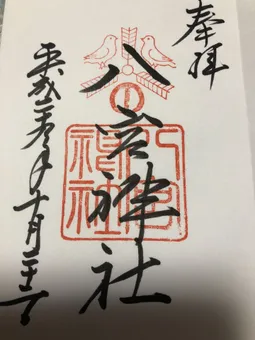 奉拝
八宮神社
平成三十年十月二十一日
八宮神社